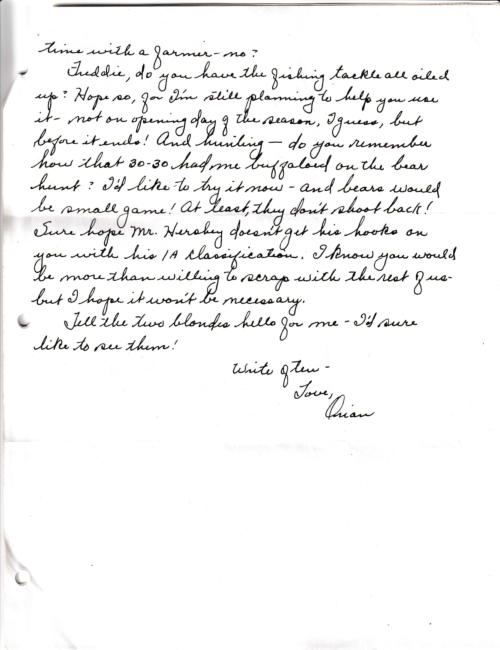 time with a farmer - no?
Freddie, do you have the fishing tackle all oiled
up? Hope so, for I'm still planning to help you use
it - not on opening day of the season, I guess, but
before it ends! And hunting - do you remember
how that 30-30 had me buffaloed on the bear
hunt? I'd like to try it now - and bears would
be small game! At least, they don't shoot back!
Sure hope Mr. Hershey doesn't get his hooks on
you with his 1A classification. I know you would
be more than willing to scrap with the rest of us -
but I hope it won't be necessary.
Tell the two blondes hello for me - I'd sure
like to see them!
Write often -
Love,
Orian